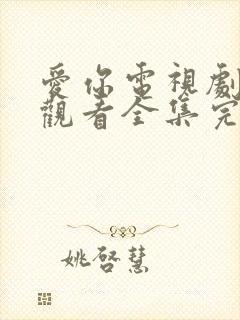 愛你電視劇
觀看全集完
姚啓慧